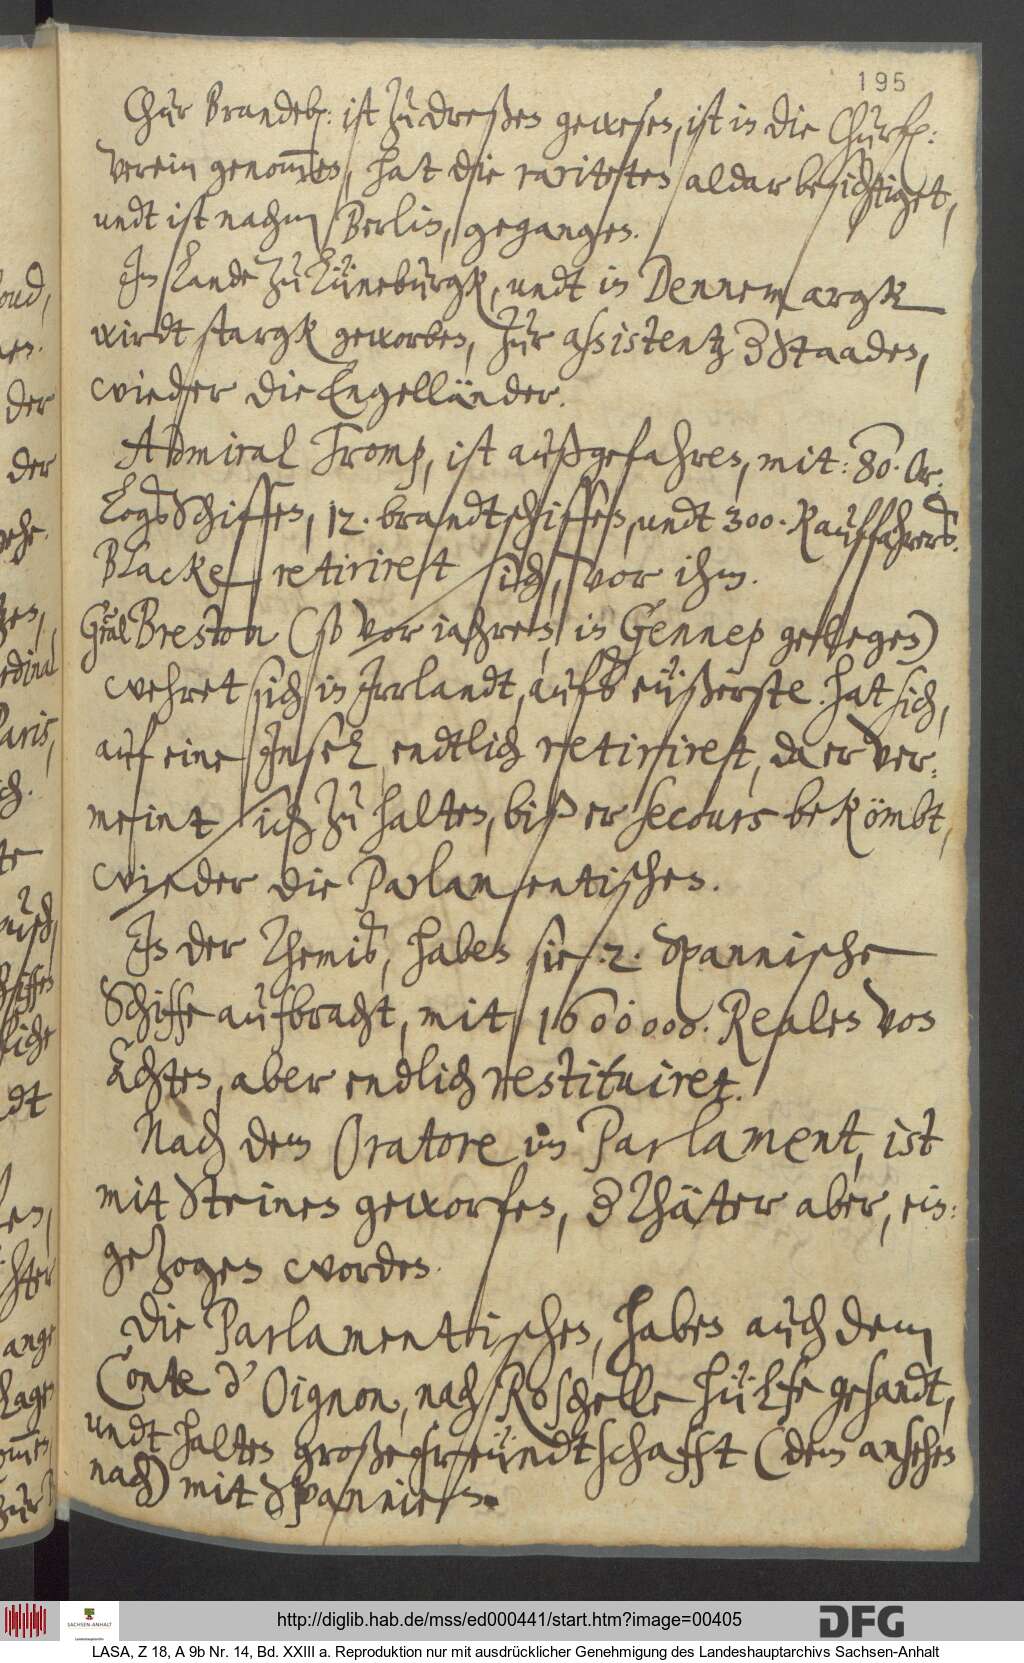 195
Chur Brandeb: ist zu dreßen gewesen, ist in die Churf:
verein genom̅en, hat die rariteten aldar besichtiget,
undt ist nachm Berlin, gegangen.
Im Lande zu Lüneburgk, undt in Dennemargk
wirdt stargk geworben, zur assistentz d Staaden,
wieder die Engelländer.
Admiral Tromp, ist außgefahren, mit: 80. Or:
Logs Schiffen, 12. brandtschiffen, undt 300. Kauffahrers.
Blacke retirirest sich, vor ihm.
Gral Breston (so vor iahren, in Gennep gelegen)
wehret sich in Irrlandt, aufs eüßerste. hat sich,
auf eine Insel endtlich retirirest, da er ver:
meint sich zu halten, biß er secours bekömbt,
wieder die Parlamentischen.
In der Themis, haben sie .2. Spannische
Schiffe aufbracht, mit 1600000. Realen von
Achten, aber endlich restituiret.
Nach dem Oratore im Parlament, ist
mit Steinen geworfen, d Thäter aber, ein:
gezogen worden.
Die Parlamentischen, haben auch dem
Conte d' Oignon, nach Roschelle hülfe gesandt,
undt halten große freündtschafft (dem ansehen
nach) mit Spannien.
oud,
der
der
Paris,
dt
http://diglib.hab.de/mss/ed000441/start.htm?image=00405
SACHSEN-ANHALT
DFG
LASA, Z 18, A 9b Nr. 14, Bd. XXIII a. Reproduktion nur mit ausdrücklicher Genehmigung des Landeshauptarchivs Sachsen-Anhalt